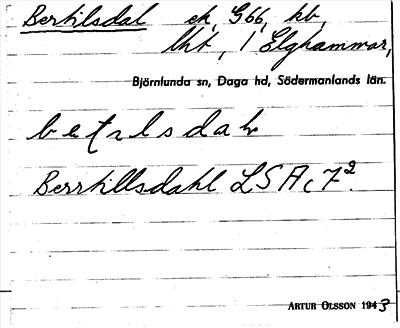 Bertilsdal ek, G66, kb,
lht, / Elghammar,
Björnlunda sn, Daga hd, Södermanlands län.
Berrtillsdahl LSA c 7².
ARTUR OLSSON 1943